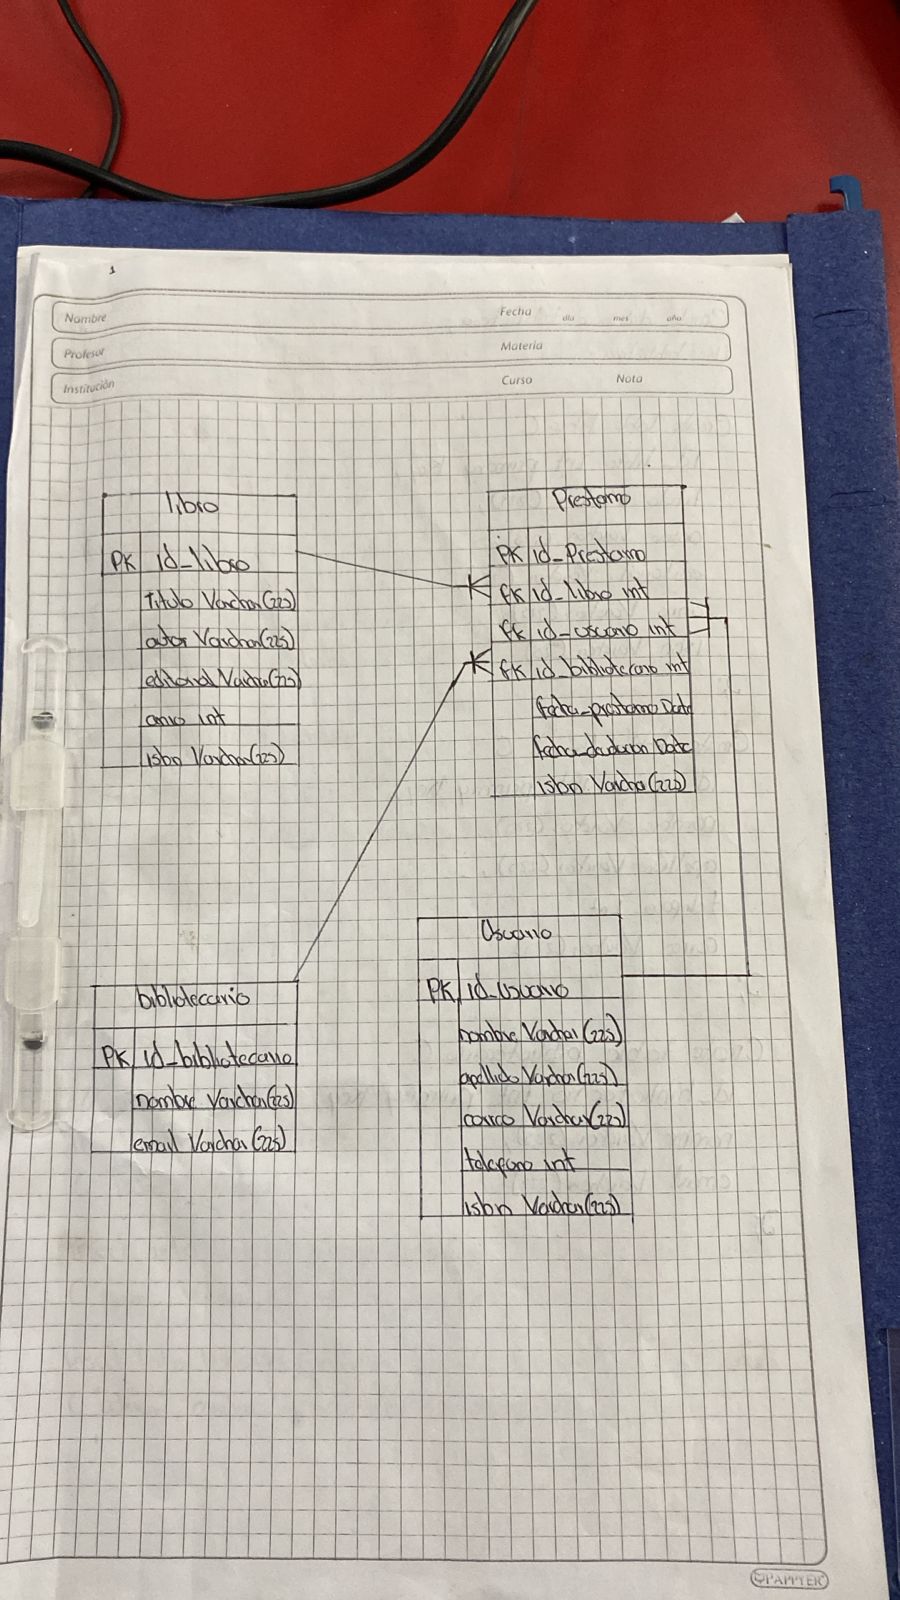 1
Nombre
Fecha día mes año
Profesor
Materia
Institución
Curso Nota
libro
PK id_libro
Titulo Varchar(225)
autor Varchar(225)
editorial Varchar(225)
anio int
isbn Varchar(225)
Prestamo
PK id_Prestamo
fk id_libro int
fk id_usuario int
fk id_bibliotecario int
fecha_prestamo Date
Date
isbn Varchar(225)
bibliotecario
PK id_bibliotecario
nombre Varchar(225)
email Varchar(225)
Usuario
PK id_Usuario
nombre Varchar(225)
apellido Varchar(225)
correo Varchar(225)
telefono int
isbn Varchar(225)
PAPYER